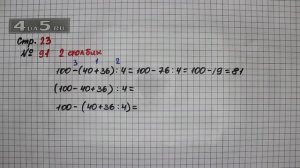 4DA5.RU
Стр. 23
№ 91 2 столбик
3 1 2
100-(40+36):4=100-76:4=100-19=81
(100-40+36):4=
100-(40+36:4)=